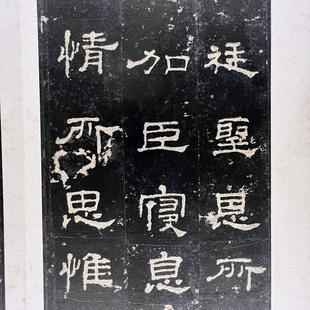 廷聖恩所
加臣寢息
情所思惟